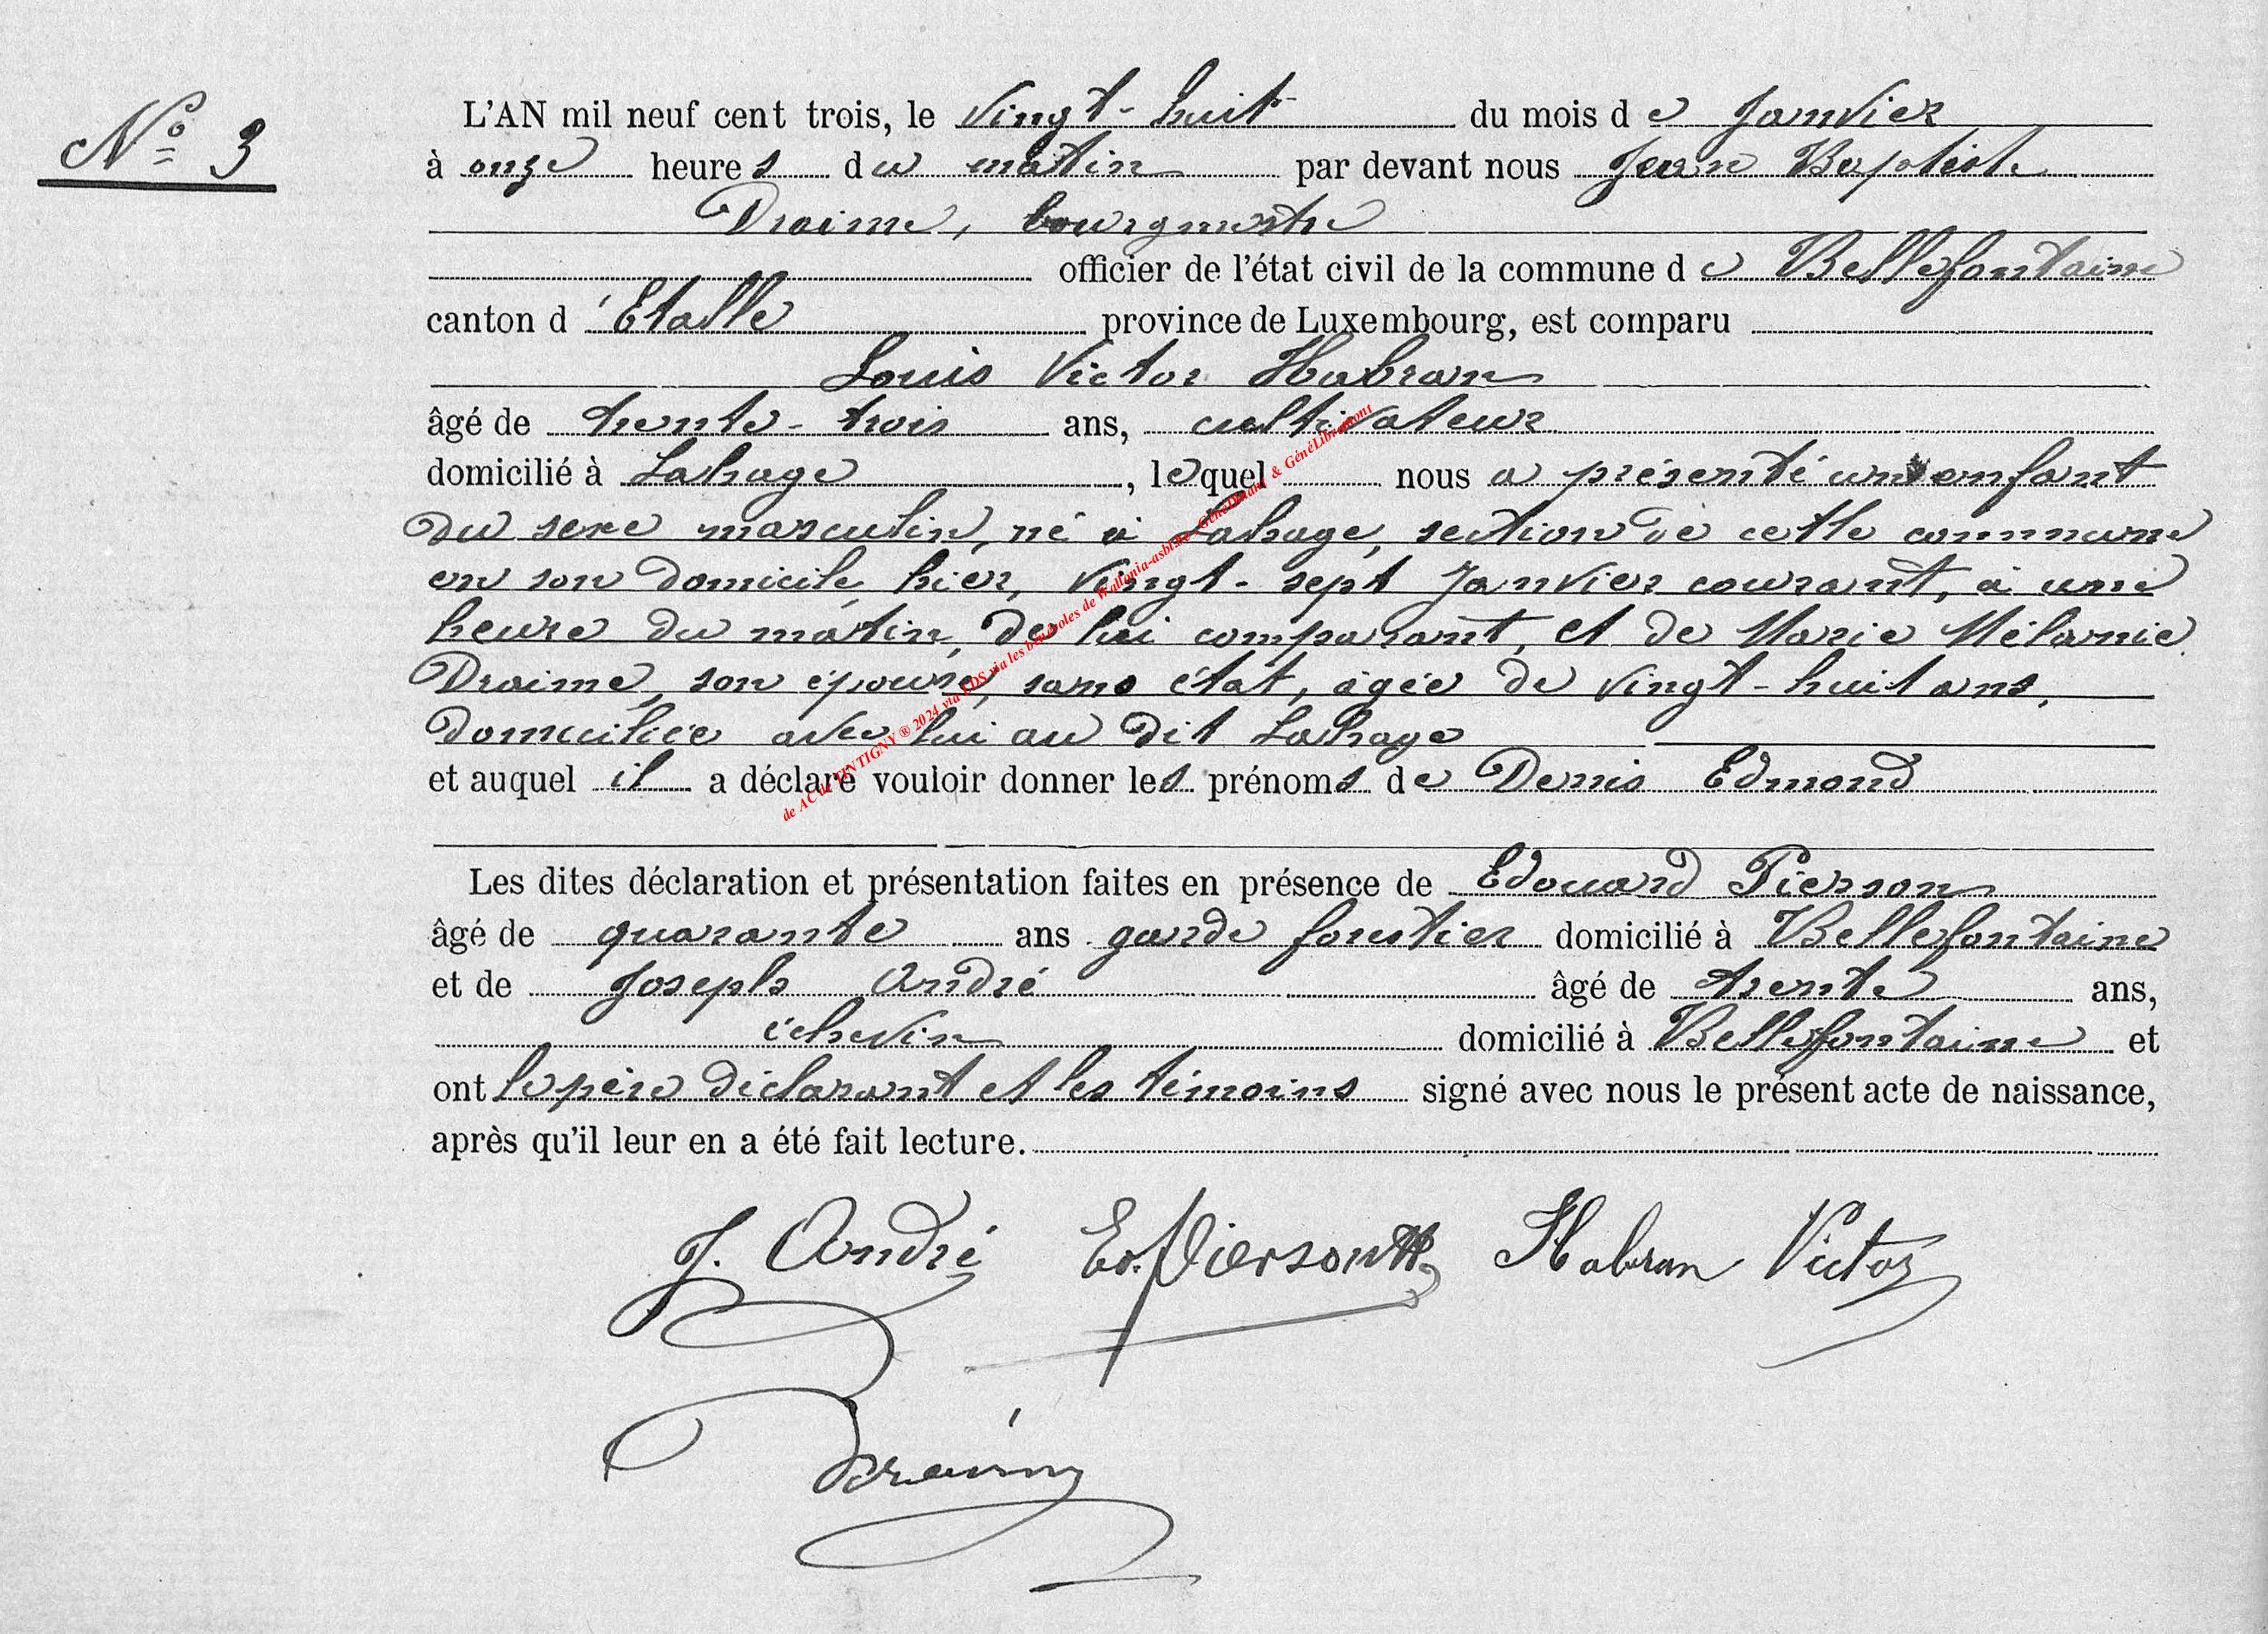 N° 3
L'AN mil neuf cent trois, le Vingt-huit du mois de Janvier
à onze heures du matin par devant nous Jean Baptiste
Draime, bourgmestre
officier de l'état civil de la commune de Bellefontaine
canton d'Etalle province de Luxembourg, est comparu
Louis Victor Habran
âgé de trente-trois ans, cultivateur
domicilié à Lahage, lequel nous a présenté un enfant
du sexe masculin, né à Lahage, section de cette commune
en son domicile, hier, vingt-sept Janvier courant, à une
heure du matin, de lui comparant, et de Marie Mélanie
Draime, son épouse, sans état, âgée de vingt-huit ans,
domiciliée avec lui au dit Lahage
et auquel il a déclaré vouloir donner les prénoms de Denis Edmond
Les dites déclaration et présentation faites en présence de Edouard Pierson
âgé de quarante ans garde forestier domicilié à Bellefontaine
et de Joseph André âgé de trente ans,
échevin domicilié à Bellefontaine et
ont le père déclarant et les témoins signé avec nous le présent acte de naissance,
après qu'il leur en a été fait lecture.
J. André Ed. Pierson Habran Victor
Draime
de AC de TINTIGNY ® 2024 via FDS via les bénévoles de Wallonia-asbl.be - GénéDinant & GénéLibramont